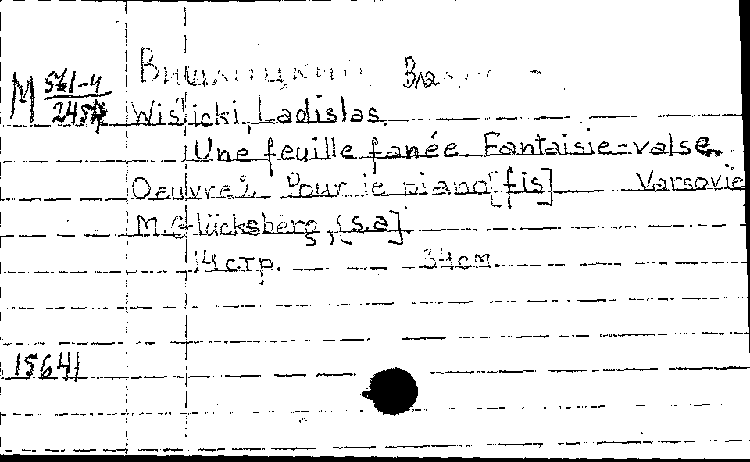 М 561-4
Wiślicki, Ladislas.
Une feuille fanée. Fantaisie-valse.
Oeuvre 2. Pour le piano [fis] Varsovie
M. Glücksberg, [s.a].
14 стр. 34 см.
15641